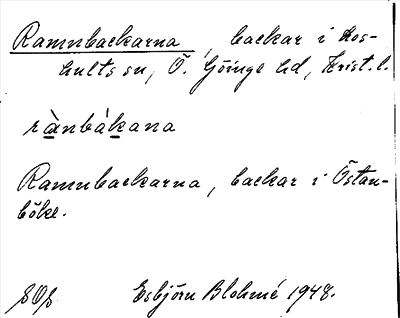 Ramnbackarna, backar i Hos-
hults sn, Ö. Göinge hd, Krist. l.
rànbákana
Ramnbackarna, backar i Östan-
böke.
Esbjörn Blohmé 1948.